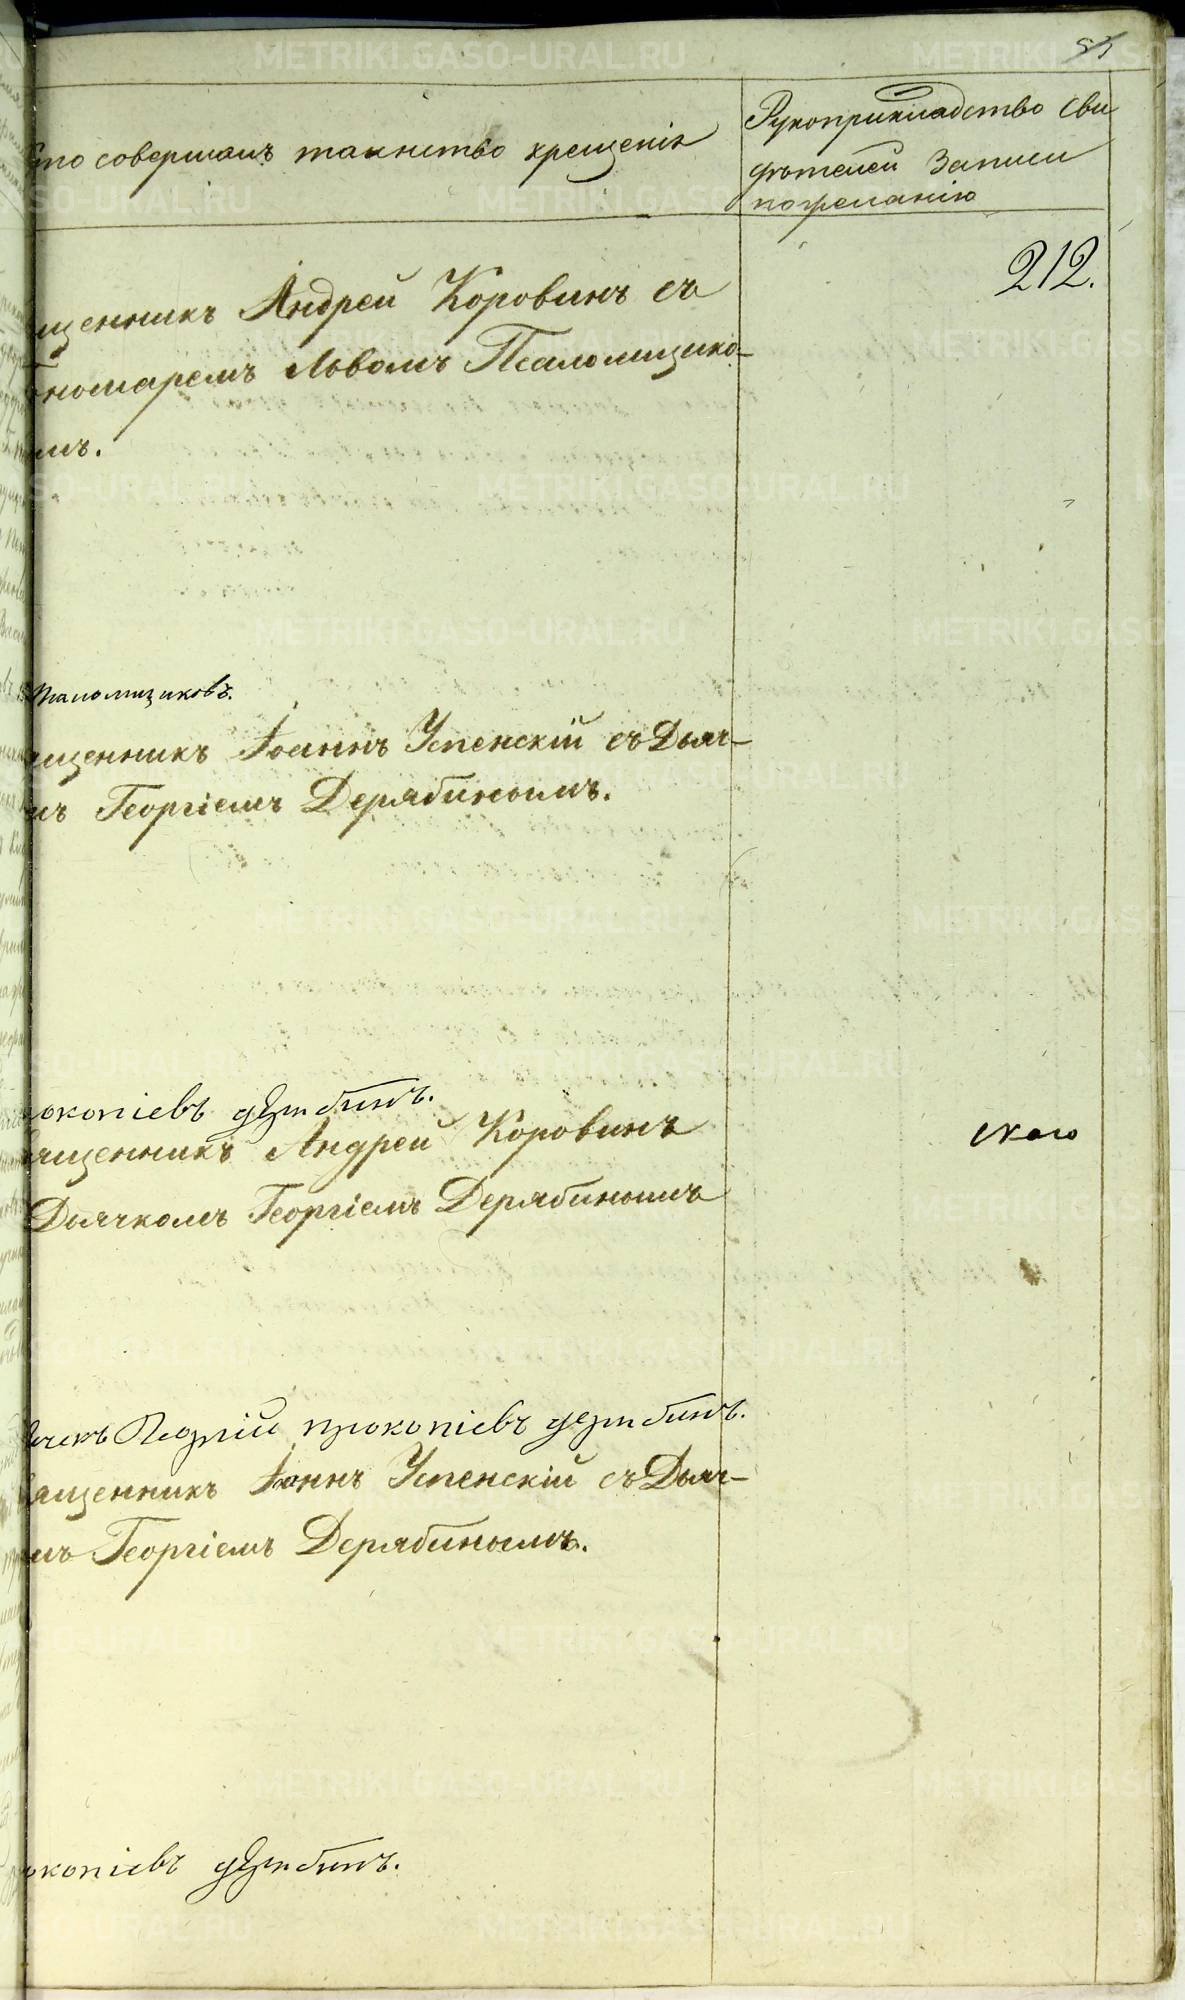 55
Кто совершалъ таинство крещенія
Рукоприкладство сви
дѣтелей записи
пожеланію
212.
щенникъ Андрей Коровинъ съ
ономаремъ Львомъ Псаломщико-
мъ.
аломщиковъ.
щенникъ Іоаннъ Успенскій съ Дьяч-
мъ Георгіемъ Дерябинымъ.
окопіевъ дерябинъ.
ященникъ Андрей Коровинъ
скаго
Дьячкомъ Георгіемъ Дерябинымъ
ячекъ Георгій прокопіевъ дерябинъ.
ященникъ Іоннъ Успенскій съ Дьяч-
мъ Георгіемъ Дерябинымъ.
окопіевъ дерябинъ.
METRIKI.GASO-URAL.RU